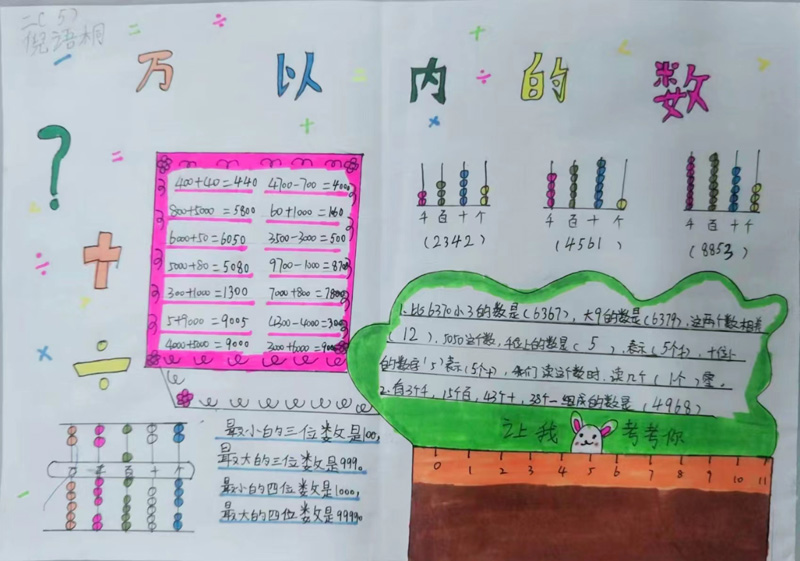 二(5)
倪语桐
万以内的数
400+40=440 4700-700=4000
800+5000=5800 60+1000=160
6000+50=6050 3500-3000=500
5000+80=5080 9700-1000=870
300+1000=1300 7000+800=7800
5+9000=9005 4300-4000=300
4000+5000=9000 3000+6000=9000
千 百 十 个
(2342)
千 百 十 个
(4561)
千 百 十 个
(8853)
1.比6370小3的数是(6367),大9的数是(6379),这两个数相差
(12)。5050这个数,千位上的数是(5),表示(5个千),十位上
的数字'5'表示(5个十),我们读这个数时,读几个(1个)零。
2.由3个千,15个百,43个十,38个一组成的数是(4968)
让我考考你
0 1 2 3 4 5 6 7 8 9 10 11
千 百 十 个
最小的三位数是100,
最大的三位数是999。
最小的四位数是1000,
最大的四位数是9999。